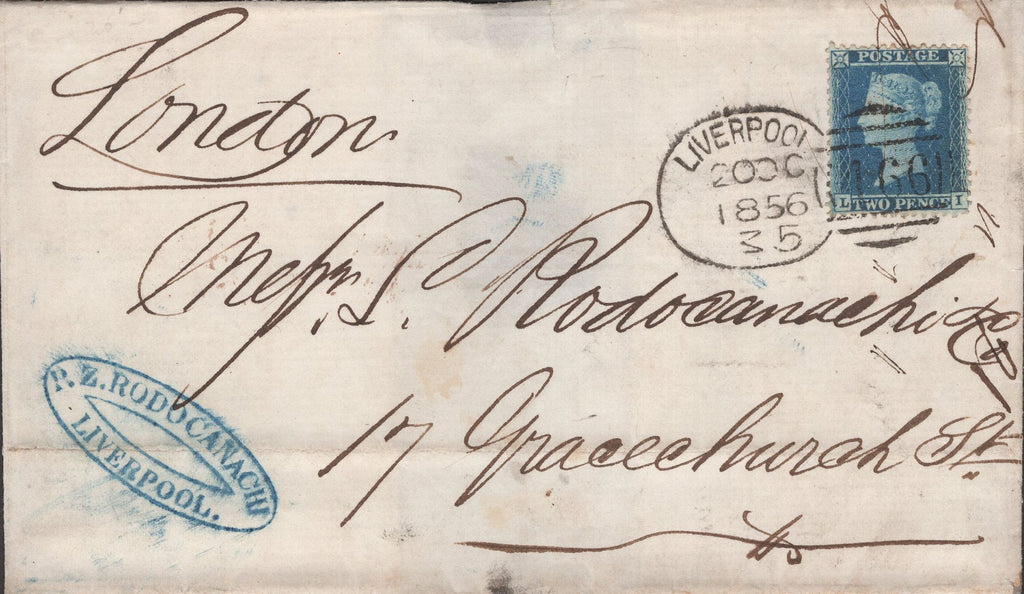 London
POSTAGE
L TWO PENCE I
LIVERPOOL
20 OC
1856
3 5
466
Messrs. S. Rodocanachi &Co
17 Gracechurch St
P. Z. RODOCANACHI
LIVERPOOL.